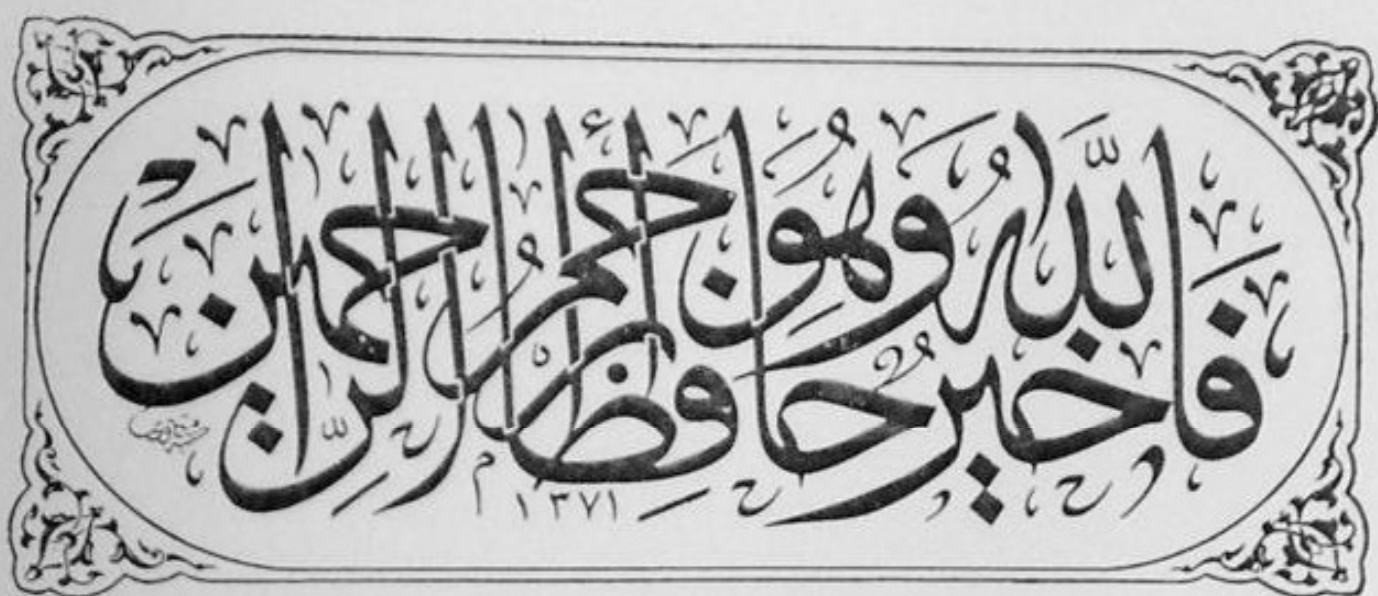 فَاللّٰهُ خَيْرٌ حَافِظًا وَهُوَ أَرْحَمُ الرَّاحِمِينَ
١٣٧١